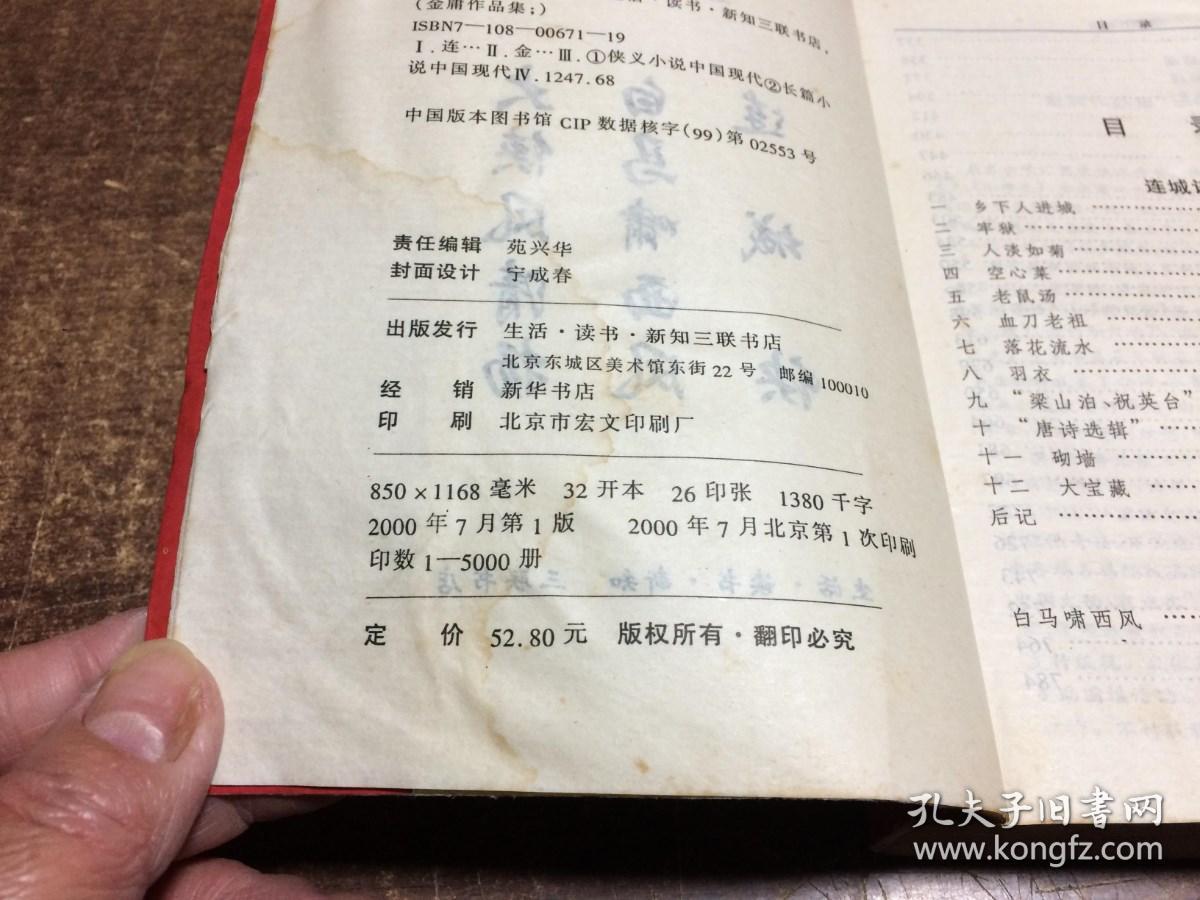 活·读书·新知三联书店，
（金庸作品集；）
ISBN7—108—00671—19
Ⅰ.连…Ⅱ.金…Ⅲ.①侠义小说中国现代②长篇小
说中国现代Ⅳ.1247.68
中国版本图书馆 CIP 数据核字(99)第 02553 号
责任编辑 苑兴华
封面设计 宁成春
出版发行 生活·读书·新知三联书店
北京东城区美术馆东街 22 号 邮编 100010
经 销 新华书店
印 刷 北京市宏文印刷厂
850×1168 毫米 32 开本 26 印张 1380 千字
2000 年 7 月第 1 版 2000 年 7 月北京第 1 次印刷
印数 1—5000 册
定 价 52.80 元 版权所有·翻印必究
目 录
目
连城
一 乡下人进城
二 牢狱
三 人淡如菊
四 空心菜
五 老鼠汤
六 血刀老祖
七 落花流水
八 羽衣
九 “梁山泊、祝英台”
十 “唐诗选辑”
十一 砌墙
十二 大宝藏
后记
白马啸西风
孔夫子旧书网
www.kongfz.com